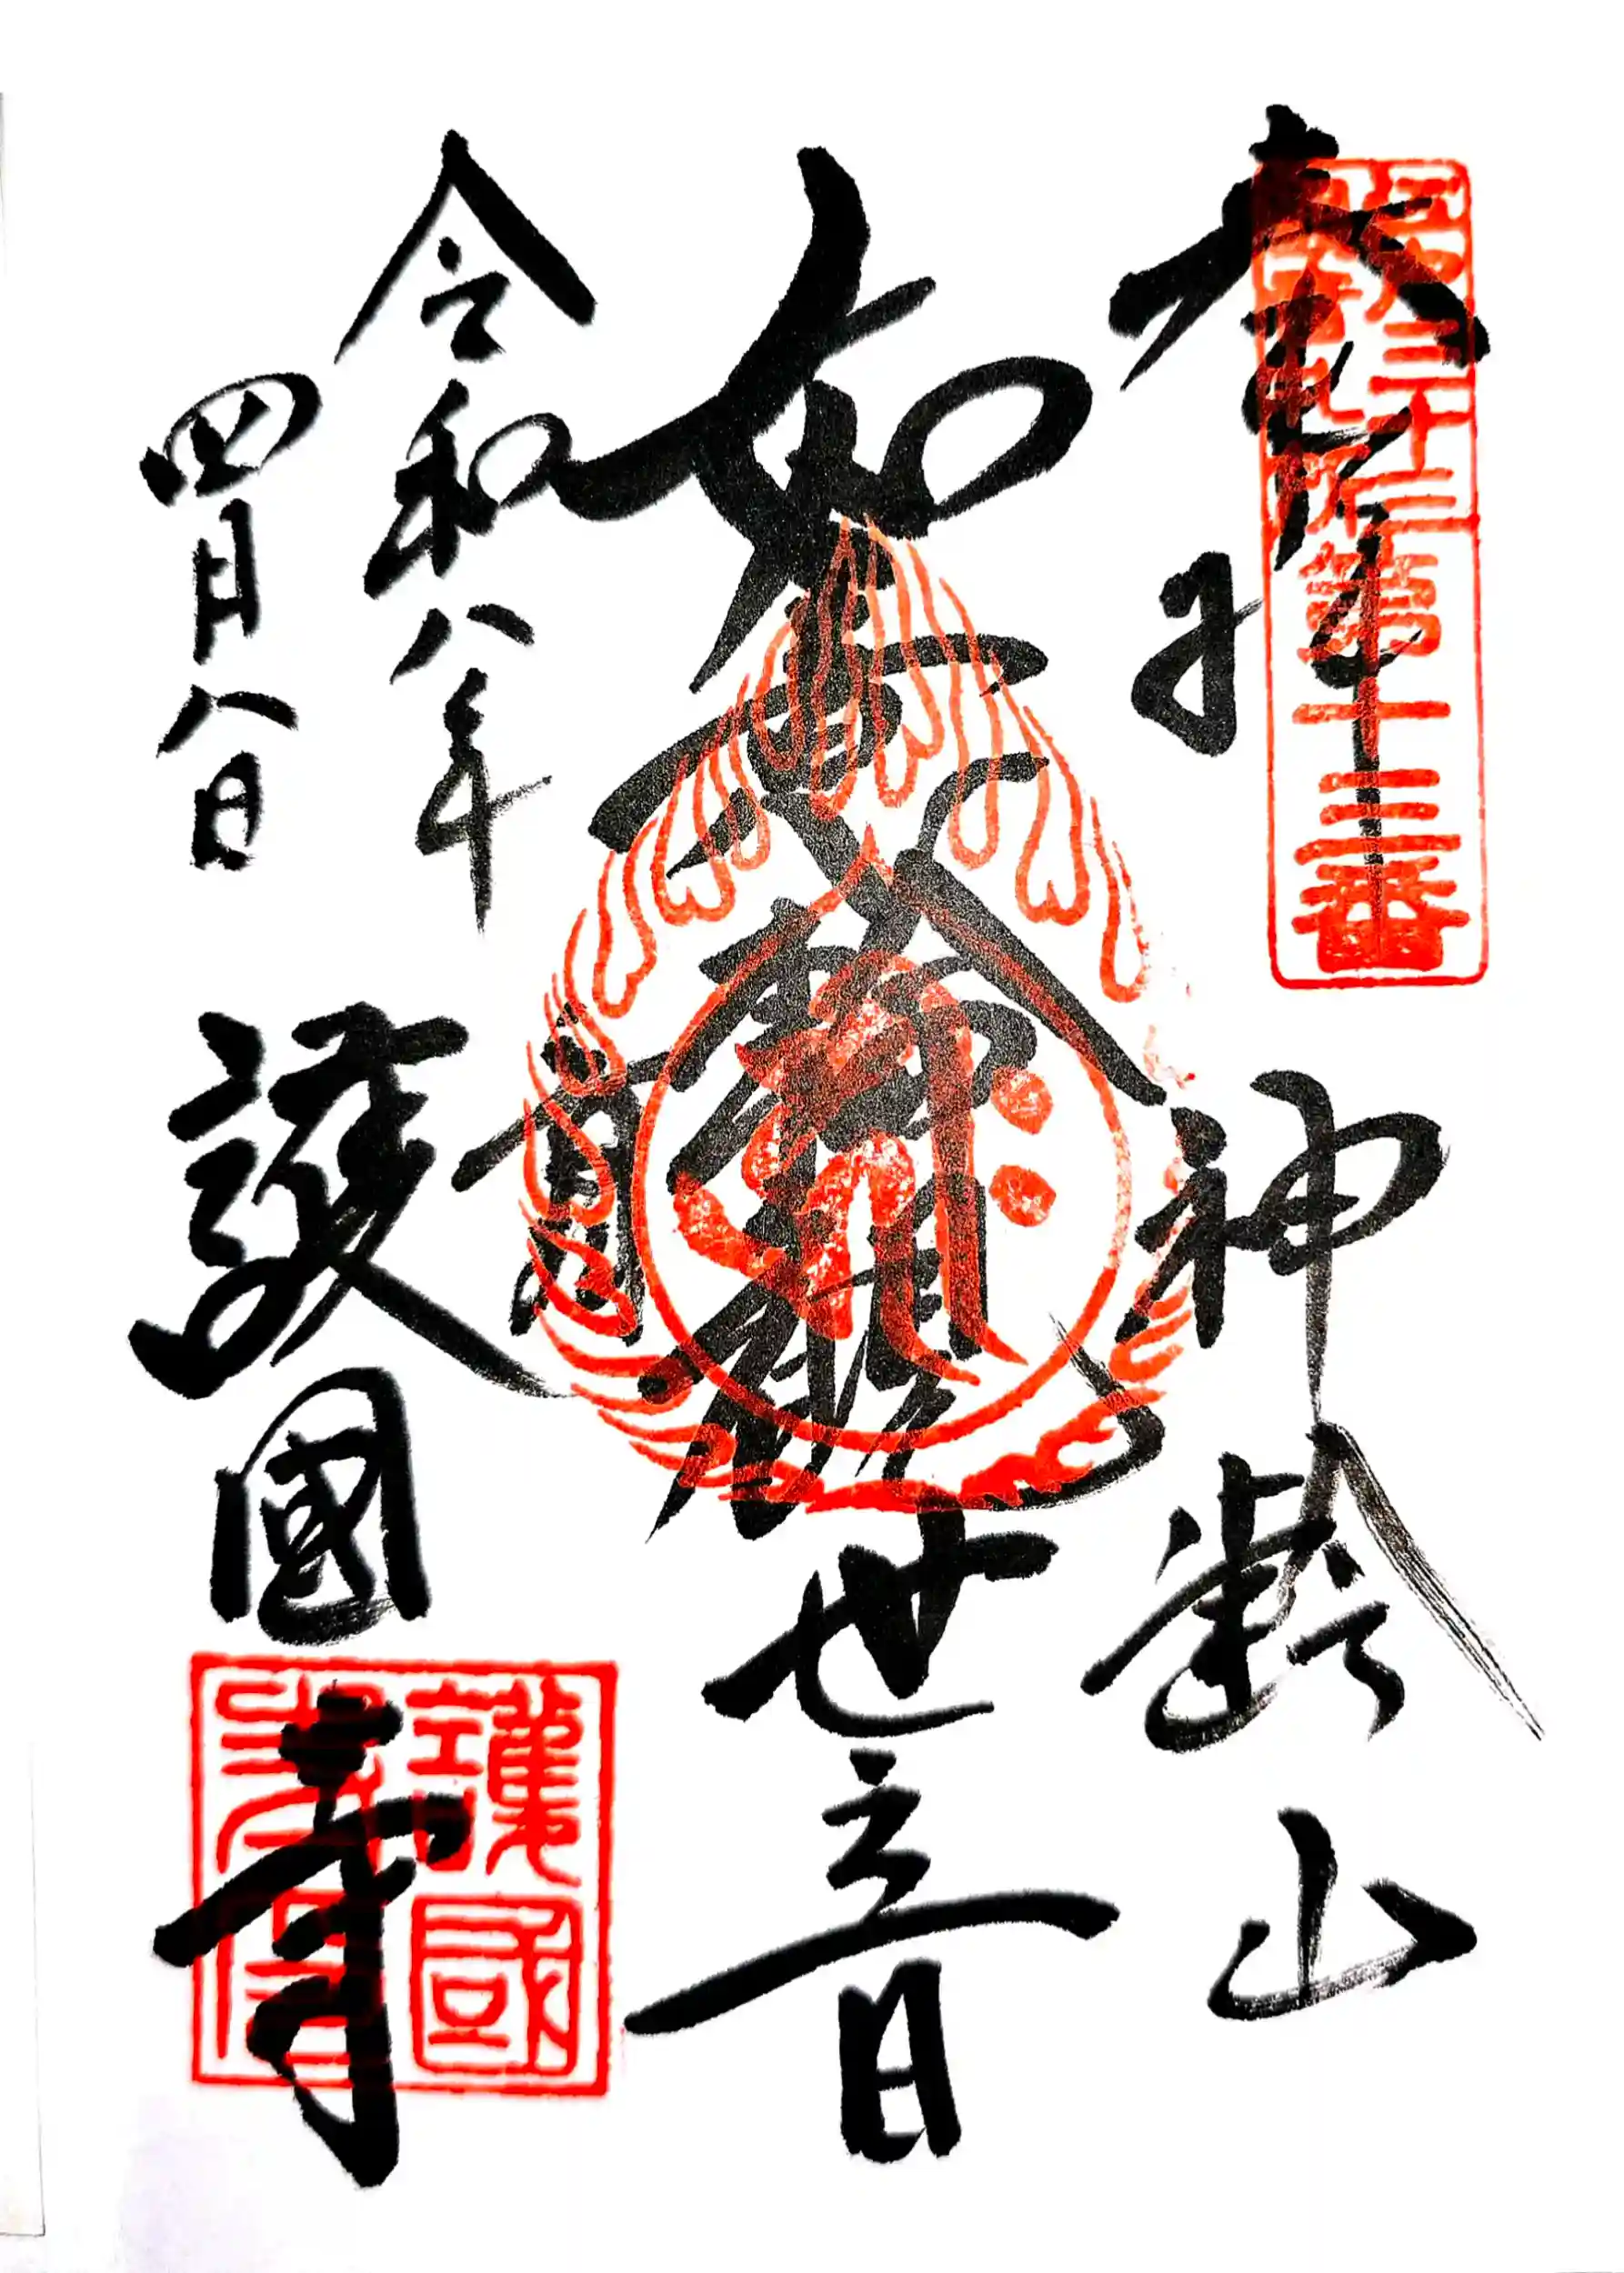 奉拝
江戸三十三
観音札所
第十三番
神齢山
如意輪観世音
令和八年
四月八日
護國寺
護國